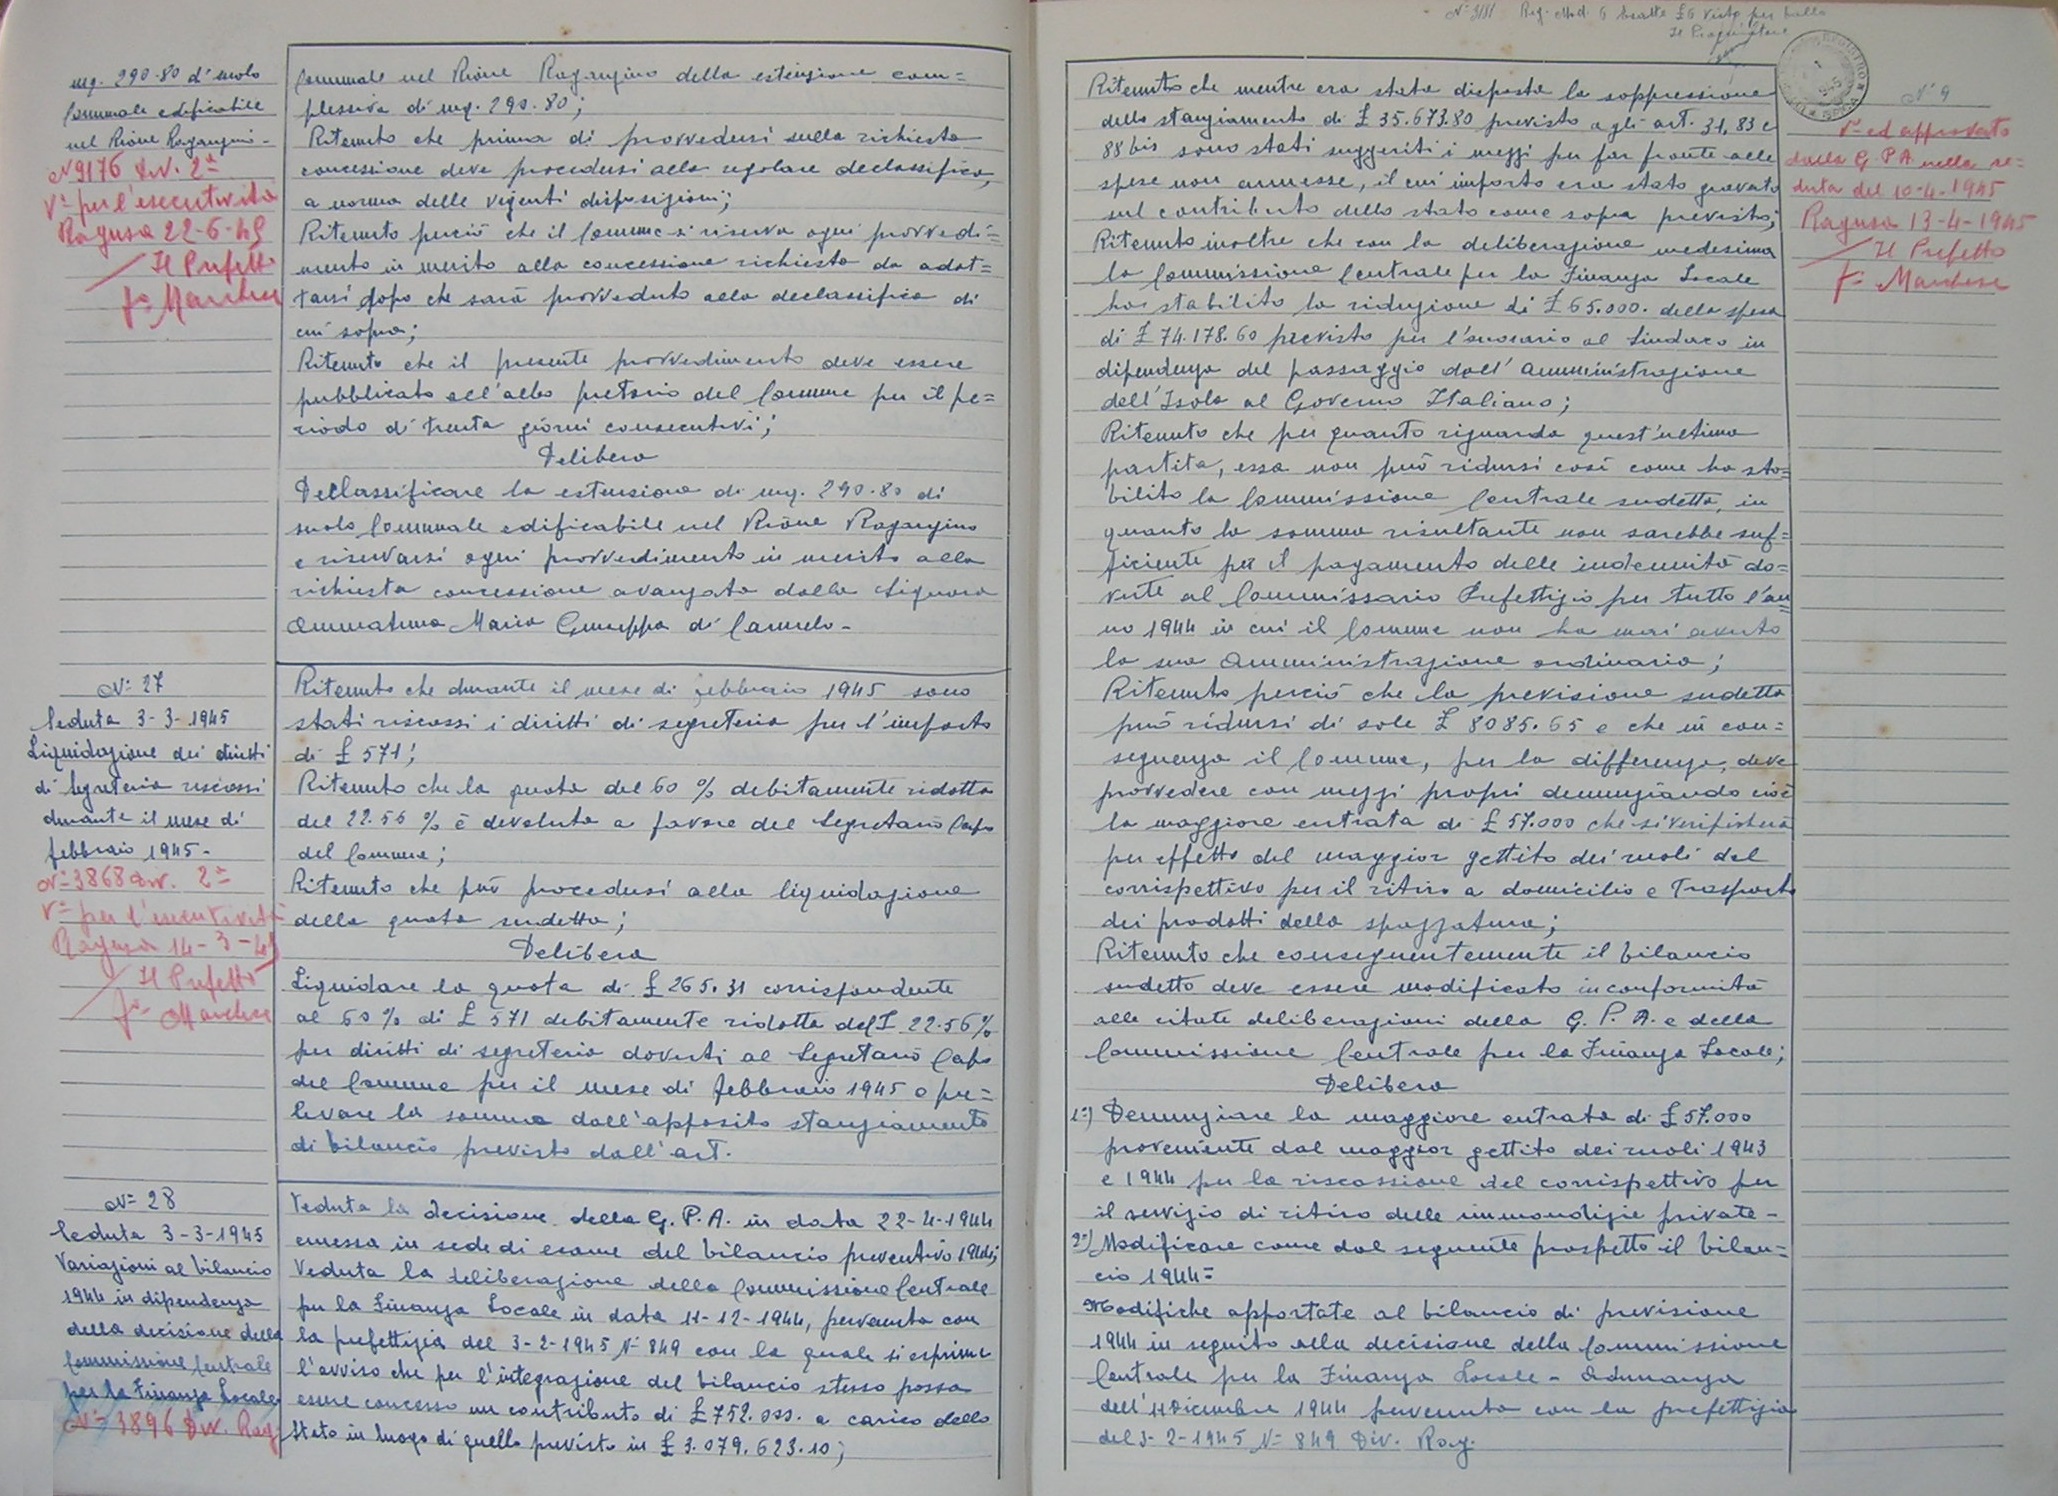 mq. 290.80 di suolo
Comunale edificabile
nel Rione Raganzino -
N 9176 Div. 2ª
Vº per l'esecutività
Ragusa 22-6-45
Il Prefetto
fº
Comunale nel Rione Raganzino della estenzione com=
plessiva di mq. 290.80;
Ritenuto che prima di provvedersi sulla richiesta
concessione deve procedersi alla regolare declassifica,
a norma delle vigenti disposizioni;
Ritenuto perciò che il Comune si riserva ogni provvedi=
mento in merito alla concessione richiesta da adot=
tarsi dopo che sarà provveduto alla declassifica di
cui sopra;
Ritenuto che il presente provvedimento deve essere
pubblicato all'albo pretorio del Comune per il pe=
riodo di trenta giorni consecutivi;
Delibera
Declassificare la estensione di mq. 290.80 di
suolo Comunale edificabile nel Rione Raganzino
e riservarsi ogni provvedimento in merito alla
richiesta concessione avanzata dalla Signora
Ammatuna Maria Giuseppa di Carmelo -
Nº 27
Seduta 3-3-1945
Liquidazione dei diritti
di Segreteria riscossi
durante il mese di
febbraio 1945 -
Nº 3868 Div. 2ª
Vº per l'esecutività
Ragusa 14-3-45
Il Prefetto
fº
Ritenuto che durante il mese di febbraio 1945 sono
stati riscossi i diritti di segreteria per l'importo
di £ 571;
Ritenuto che la quota del 60 % debitamente ridotta
del 22.56 % è devoluta a favore del Segretario Capo
del Comune;
Ritenuto che può procedersi alla liquidazione
della quota sudetta;
Delibera
Liquidare la quota di £ 265.31 corrispondente
al 60 % di £ 571 debitamente ridotta del 22.56 %
per diritti di segreteria dovuti al Segretario Capo
del Comune per il mese di febbraio 1945 e pre=
levare la somma dall'apposito stanziamento
di bilancio previsto dall'art.
Nº 28
Seduta 3-3-1945
Variazioni al bilancio
1944 in dipendenza
della decisione della
Commissione Centrale
per la Finanza Locale
Nº 3896 Div. Rag.
Veduta la decisione della G. P. A. in data 22-4-1944
emessa in sede di esame del bilancio preventivo 1944;
Veduta la deliberazione della Commissione Centrale
per la Finanza Locale in data 11-12-1944, pervenuta con
la prefettizia del 3-2-1945 Nº 849 con la quale si esprime
l'avviso che per l'integrazione del bilancio stesso possa
essere concesso un contributo di £ 752.000. a carico dello
Stato in luogo di quello previsto in £ 3.079.623.10;
Nº 3131 Reg. Mod. 6 Esatte £ 6 Visto per bollo
Il Procuratore
Ritenuto che mentre era stata disposta la soppressione
dello stanziamento di £ 35.673.80 previsto agli art. 31, 83 e
88 bis sono stati suggeriti i mezzi per far fronte alle
spese non ammesse, il cui importo era stato gravato
sul contributo dello stato come sopra previsto;
Ritenuto inoltre che con la deliberazione medesima
la Commissione Centrale per la Finanza Locale
ha stabilito la riduzione di £ 65.000. della spesa
di £ 74.178.60 previsto per l'onorario al Sindaco in
dipendenza del passaggio dall'Amministrazione
dell'Isola al Governo Italiano;
Ritenuto che per quanto riguarda quest'ultima
partita, essa non può ridursi così come ha sta=
bilito la Commissione Centrale sudetta, in
quanto la somma risultante non sarebbe suf=
ficiente per il pagamento delle indennità do=
vute al Commissario Prefettizio per tutto l'an=
no 1944 in cui il Comune non ha mai avuto
la sua Amministrazione ordinaria;
Ritenuto perciò che la previsione sudetta
può ridursi di sole £ 8085.65 e che in con=
seguenza il Comune, per la differenza, deve
provvedere con mezzi propri denunziando cioè
la maggiore entrata di £ 57.000 che si verificherà
per effetto del maggior gettito dei ruoli del
corrispettivo per il ritiro a domicilio e trasporto
dei prodotti della spazzatura;
Ritenuto che conseguentemente il bilancio
sudetto deve essere modificato in conformità
alle citate deliberazioni della G. P. A. e della
Commissione Centrale per la Finanza Locale;
Delibera
1º) Denunziare la maggiore entrata di £ 57.000
proveniente dal maggior gettito dei ruoli 1943
e 1944 per la riscossione del corrispettivo per
il servizio di ritiro delle immondizie private -
2º) Modificare come dal seguente prospetto il bilan=
cio 1944=
Modifiche apportate al bilancio di previsione
1944 in seguito alla decisione della Commissione
Centrale per la Finanza Locale - Adunanza
dell'11 Dicembre 1944 pervenuta con la prefettizia
del 3-2-1945 Nº 849 Div. Rag.
Nº 9
Vº ed approvato
dalla G. P. A. nella se=
duta del 10-4-1945
Ragusa 13-4-1945
Il Prefetto
fº